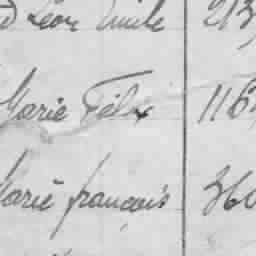 Léon Emile 213
Marie Félix 116
Marie françois 360